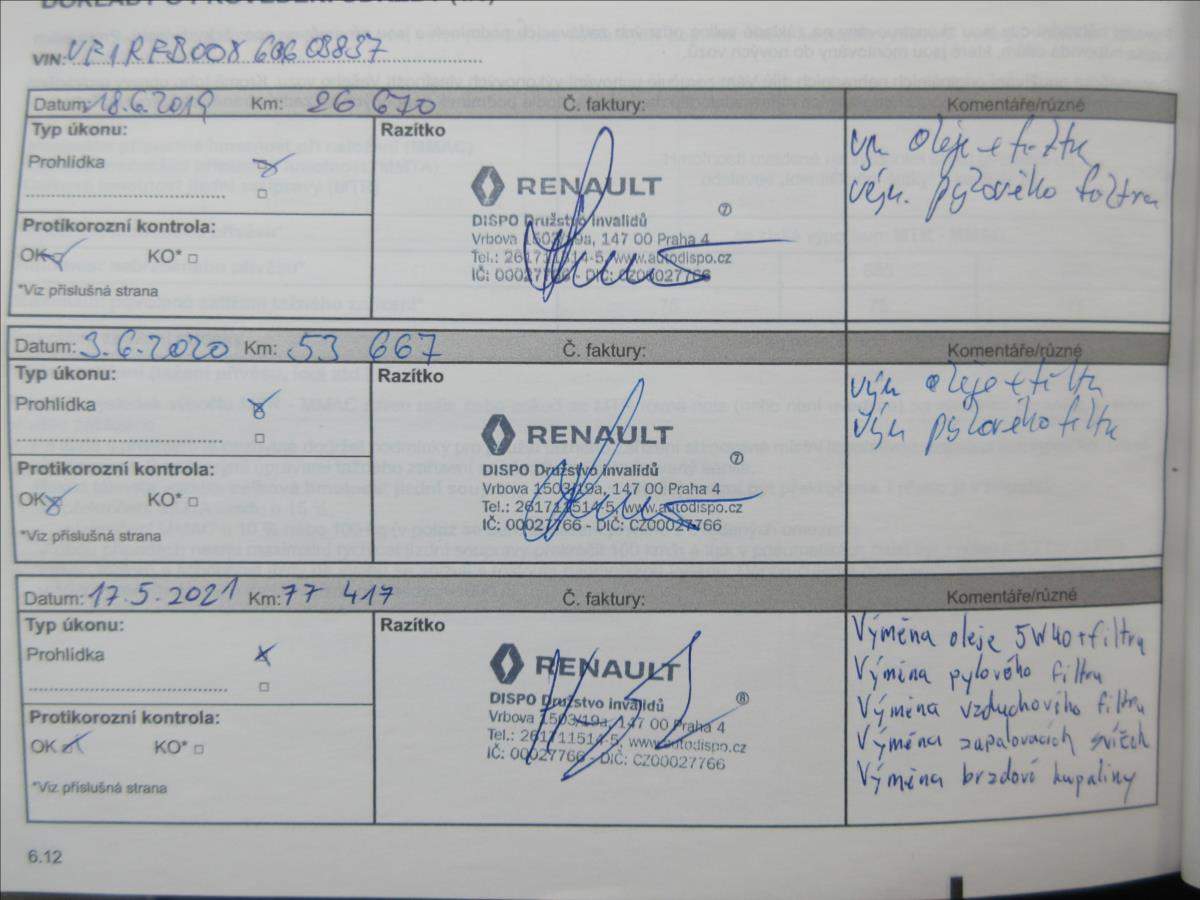 DOKLADY O PROVEDENÍ ÚDRŽBY
VIN: VF1RFB00X60608837
Datum: 18.6.2019 Km: 26 670 Č. faktury: Komentáře/různé
Typ úkonu: Razítko
Prohlídka
Protikorozní kontrola:
OK KO*
*Viz příslušná strana
RENAULT
7
DISPO Družstvo invalidů
Vrbova 1503/19a, 147 00 Praha 4
Tel.: 261711514-5, www.autodispo.cz
IČ: 00027766 - DIČ: CZ00027766
vým oleje + filtru
vým. pylového filtru
Datum: 3.6.2020 Km: 53 667 Č. faktury: Komentáře/různé
Typ úkonu: Razítko
Prohlídka
Protikorozní kontrola:
OK KO*
*Viz příslušná strana
RENAULT
7
DISPO Družstvo invalidů
Vrbova 1503/19a, 147 00 Praha 4
Tel.: 261711514-5, www.autodispo.cz
IČ: 00027766 - DIČ: CZ00027766
vým oleje + filtru
vým pylového filtru
Datum: 17.5.2021 Km: 77 417 Č. faktury: Komentáře/různé
Typ úkonu: Razítko
Prohlídka
Protikorozní kontrola:
OK KO*
*Viz příslušná strana
RENAULT
8
DISPO Družstvo invalidů
Vrbova 1503/19a, 147 00 Praha 4
Tel.: 261711514-5, www.autodispo.cz
IČ: 00027766 - DIČ: CZ00027766
Výměna oleje 5W40 + filtru
Výměna pylového filtru
Výměna vzduchového filtru
Výměna zapalovacích svíček
Výměna brzdové kapaliny
6.12